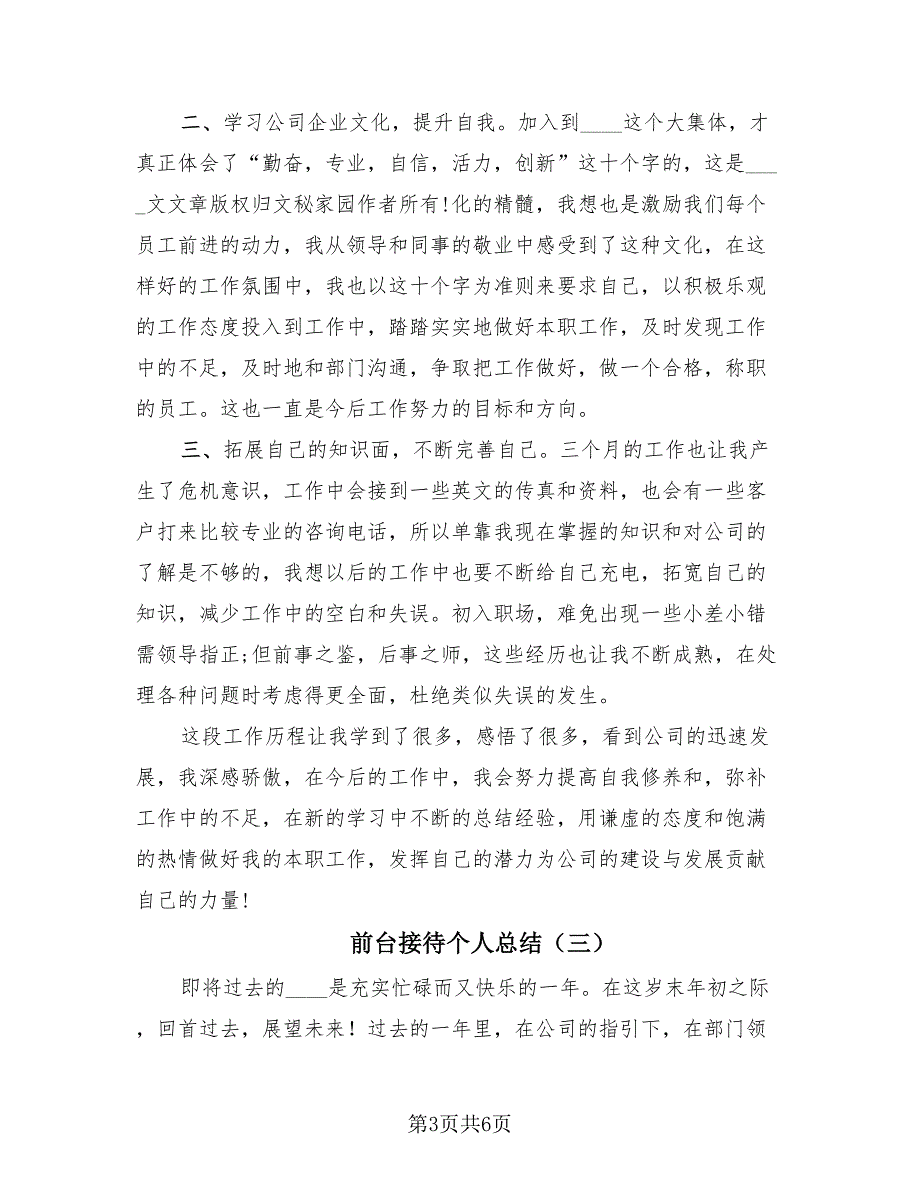 二、学习公司企业文化，提升自我。加入到____这个大集体，才
真正体会了“勤奋，专业，自信，活力，创新”这十个字的，这是___
_文文章版权归文秘家园作者所有!化的精髓，我想也是激励我们每个
员工前进的动力，我从领导和同事的敬业中感受到了这种文化，在这
样好的工作氛围中，我也以这十个字为准则来要求自己，以积极乐观
的工作态度投入到工作中，踏踏实实地做好本职工作，及时发现工作
中的不足，及时地和部门沟通，争取把工作做好，做一个合格，称职
的员工。这也一直是今后工作努力的目标和方向。
三、拓展自己的知识面，不断完善自己。三个月的工作也让我产
生了危机意识，工作中会接到一些英文的传真和资料，也会有一些客
户打来比较专业的咨询电话，所以单靠我现在掌握的知识和对公司的
了解是不够的，我想以后的工作中也要不断给自己充电，拓宽自己的
知识，减少工作中的空白和失误。初入职场，难免出现一些小差小错
需领导指正;但前事之鉴，后事之师，这些经历也让我不断成熟，在处
理各种问题时考虑得更全面，杜绝类似失误的发生。
这段工作历程让我学到了很多，感悟了很多，看到公司的迅速发
展，我深感骄傲，在今后的工作中，我会努力提高自我修养和，弥补
工作中的不足，在新的学习中不断的总结经验，用谦虚的态度和饱满
的热情做好我的本职工作，发挥自己的潜力为公司的建设与发展贡献
自己的力量!
前台接待个人总结（三）
即将过去的____是充实忙碌而又快乐的一年。在这岁末年初之际
，回首过去，展望未来！过去的一年里，在公司的指引下，在部门领
第3页共6页